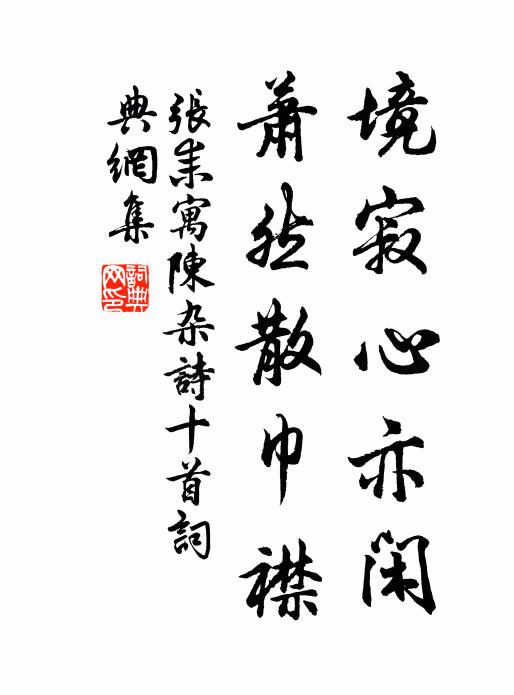 境寂心亦閑
蕭然散巾襟
張耒寓陳杂詩十首詞
典網集
詞典網印